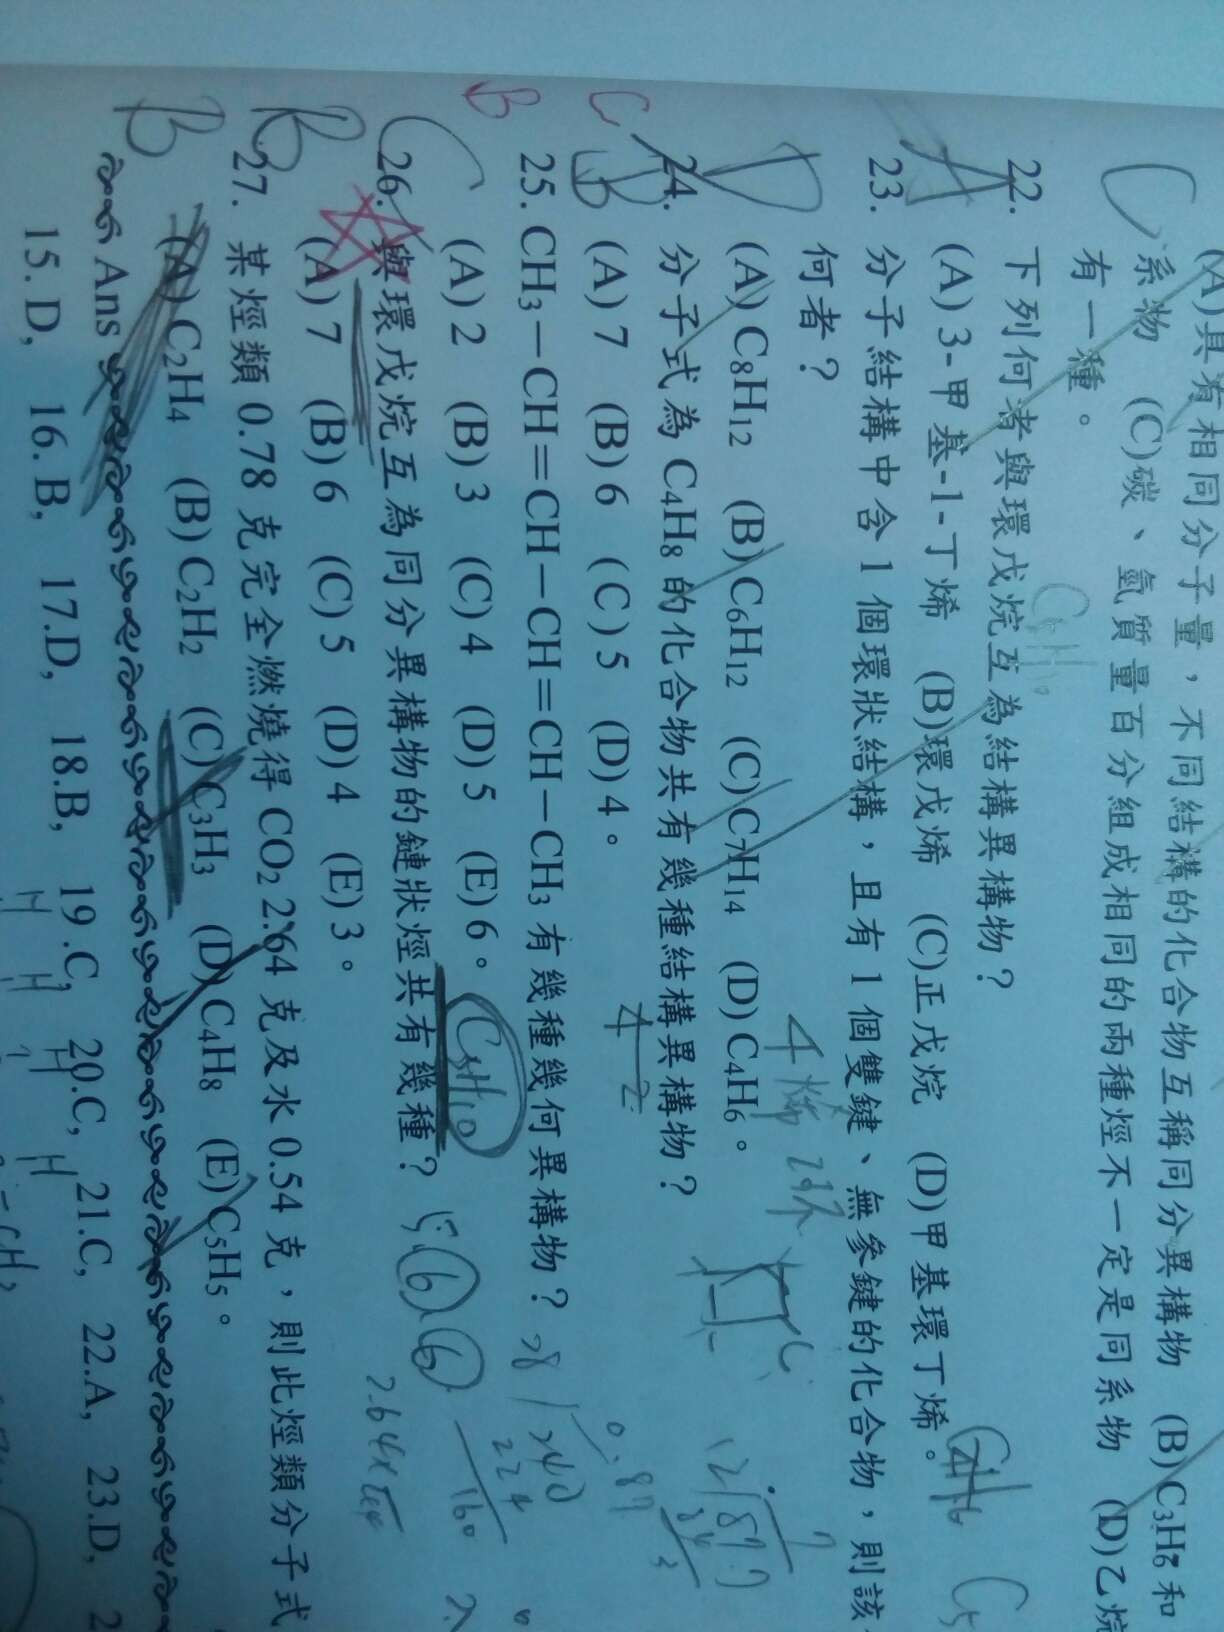 (A)具有相同分子量，不同結構的化合物互稱同分異構物 (B)C3H6和
系物 (C)碳、氫質量百分組成相同的兩種烴不一定是同系物 (D)乙烷
有一種。
C
C5H10
22. 下列何者與環戊烷互為結構異構物？
A
(A) 3-甲基-1-丁烯 (B)環戊烯 (C)正戊烷 (D)甲基環丁烯。
23. 分子結構中含 1 個環狀結構，且有 1 個雙鍵、無參鍵的化合物，則該
何者？
D
(A) C8H12 (B) C6H12 (C) C7H14 (D) C4H6。
24. 分子式為 C4H8 的化合物共有幾種結構異構物？
C
(A) 7 (B) 6 (C) 5 (D) 4。
4-2
25. CH3－CH＝CH－CH＝CH－CH3 有幾種幾何異構物？
B
(A) 2 (B) 3 (C) 4 (D) 5 (E) 6。
C5H10
26. 與環戊烷互為同分異構物的鏈狀烴共有幾種？
C
(A) 7 (B) 6 (C) 5 (D) 4 (E) 3。
27. 某烴類 0.78 克完全燃燒得 CO2 2.64 克及水 0.54 克，則此烴類分子式
B
(A) C2H4 (B) C2H2 (C) C3H3 (D) C4H8 (E) C5H5。
B
Ans
15. D, 16. B, 17.D, 18.B, 19 .C, 20.C, 21.C, 22.A, 23.D, 2
H H H H